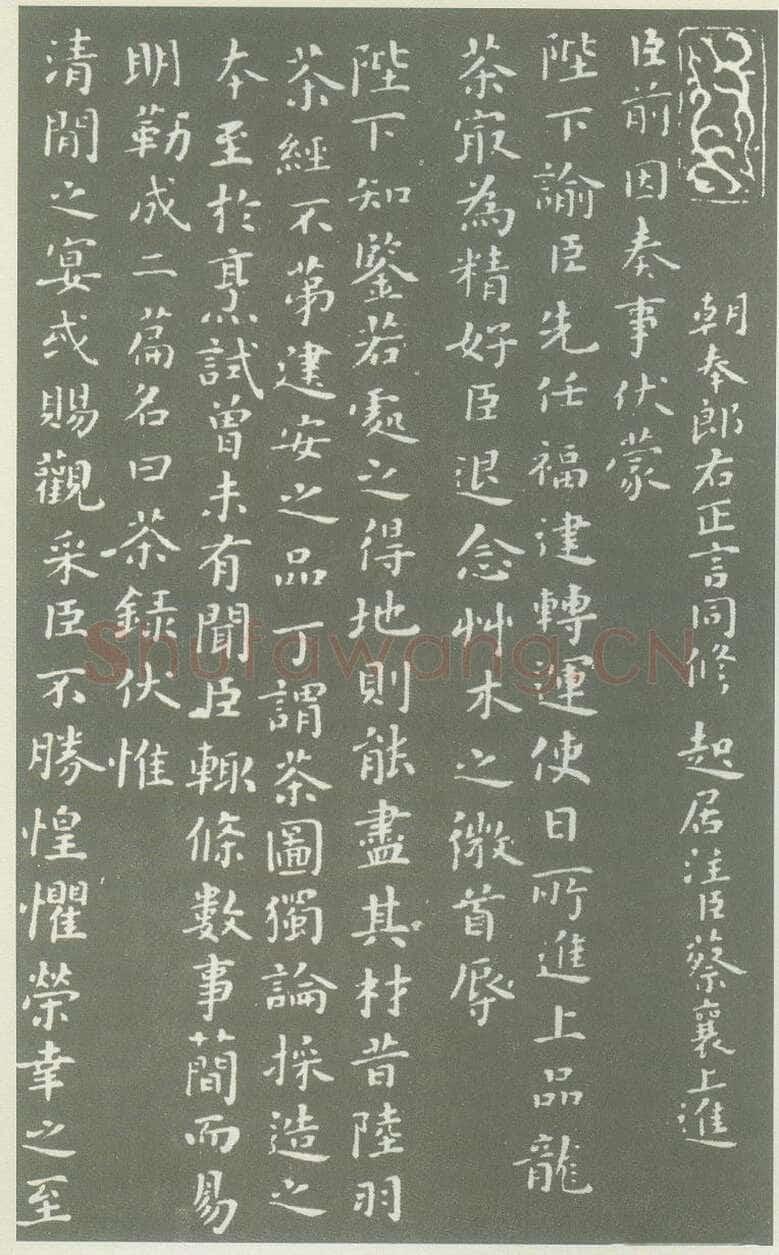 朝奉郎右正言同修 起居注臣蔡襄上進
臣前因奏事伏蒙
陛下諭臣先任福建轉運使日所進上品龍
茶冣為精好臣退念艸木之微首辱
陛下知鑒若處之得地則能盡其材昔陸羽
茶經不苐建安之品丁謂茶圖獨論採造之
本至於烹試曾未有聞臣輙條數事簡而易
明勒成二篇名曰茶録伏惟
清閒之宴或賜觀采臣不勝惶懼榮幸之至
Shufawang.CN